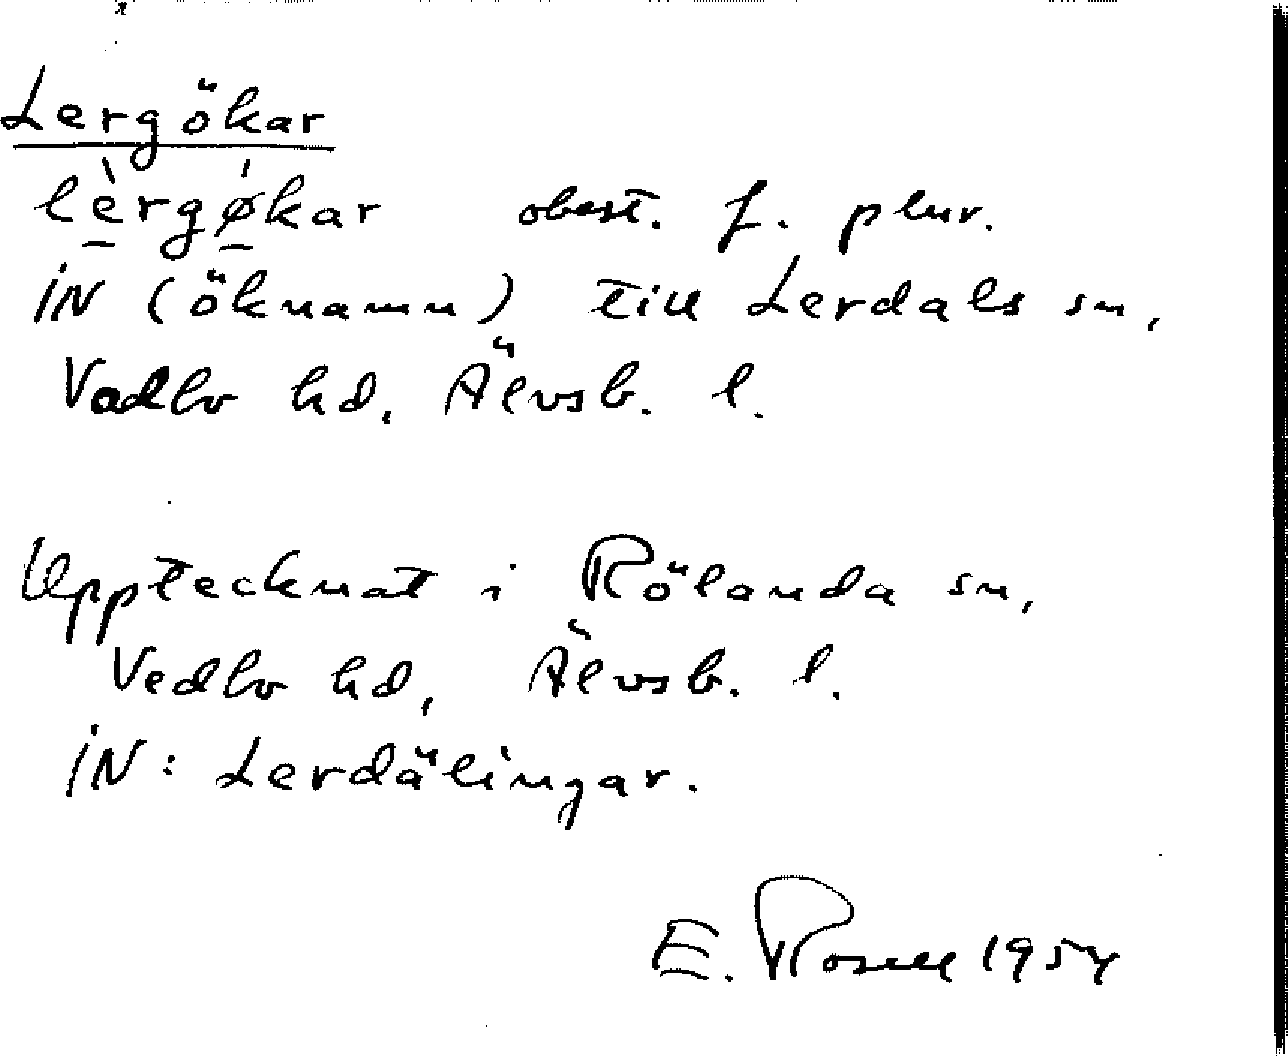 Lergökar
lè̱rgǿ̱kar obest. f. plur.
iN (öknamn) till Lerdals sn,
Vedbo hd, Älvsb. l.
Upptecknat i Rölanda sn,
Vedbo hd, Älvsb. l.
iN: Lerdälingar.
E. Rosell 1954